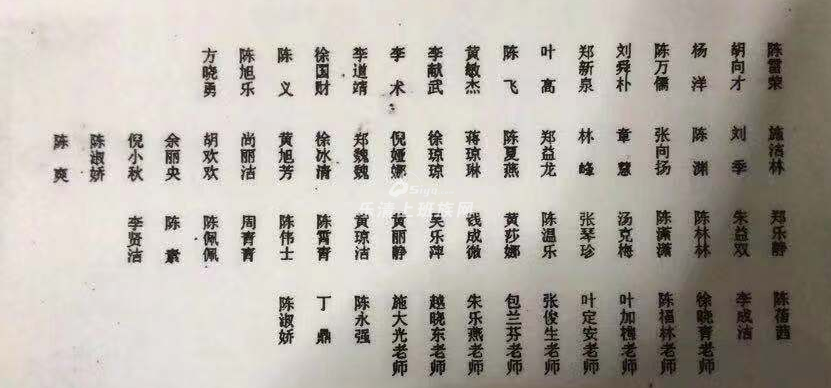 陈雷荣 胡向才 杨洋 陈万儒 刘舜朴 郑新泉 叶高 陈飞 黄敏杰 李献武 李术 李道靖 徐国财 陈义 陈旭乐 方晓勇
施洁林 刘季 陈渊 张向扬 章慧 林峰 郑益龙 陈夏燕 蒋琼琳 徐琼琼 倪娅娜 郑魏魏 徐冰清 黄旭芳 尚丽洁 胡欢欢 余丽央 倪小秋 陈淑娇 陈爽
郑乐静 朱益双 陈林林 陈潇潇 汤克梅 张琴珍 陈温乐 黄莎娜 钱成微 吴乐萍 黄丽静 黄琼洁 陈霄青 陈伟士 周青青 陈佩佩 陈素 李贤洁
陈蓓茜 李成洁 徐晓青老师 陈福林老师 叶加槐老师 叶定安老师 张俊生老师 包兰芬老师 朱乐燕老师 越晓东老师 施大光老师 陈永强 丁鼎 陈淑娇
乐清上班族网